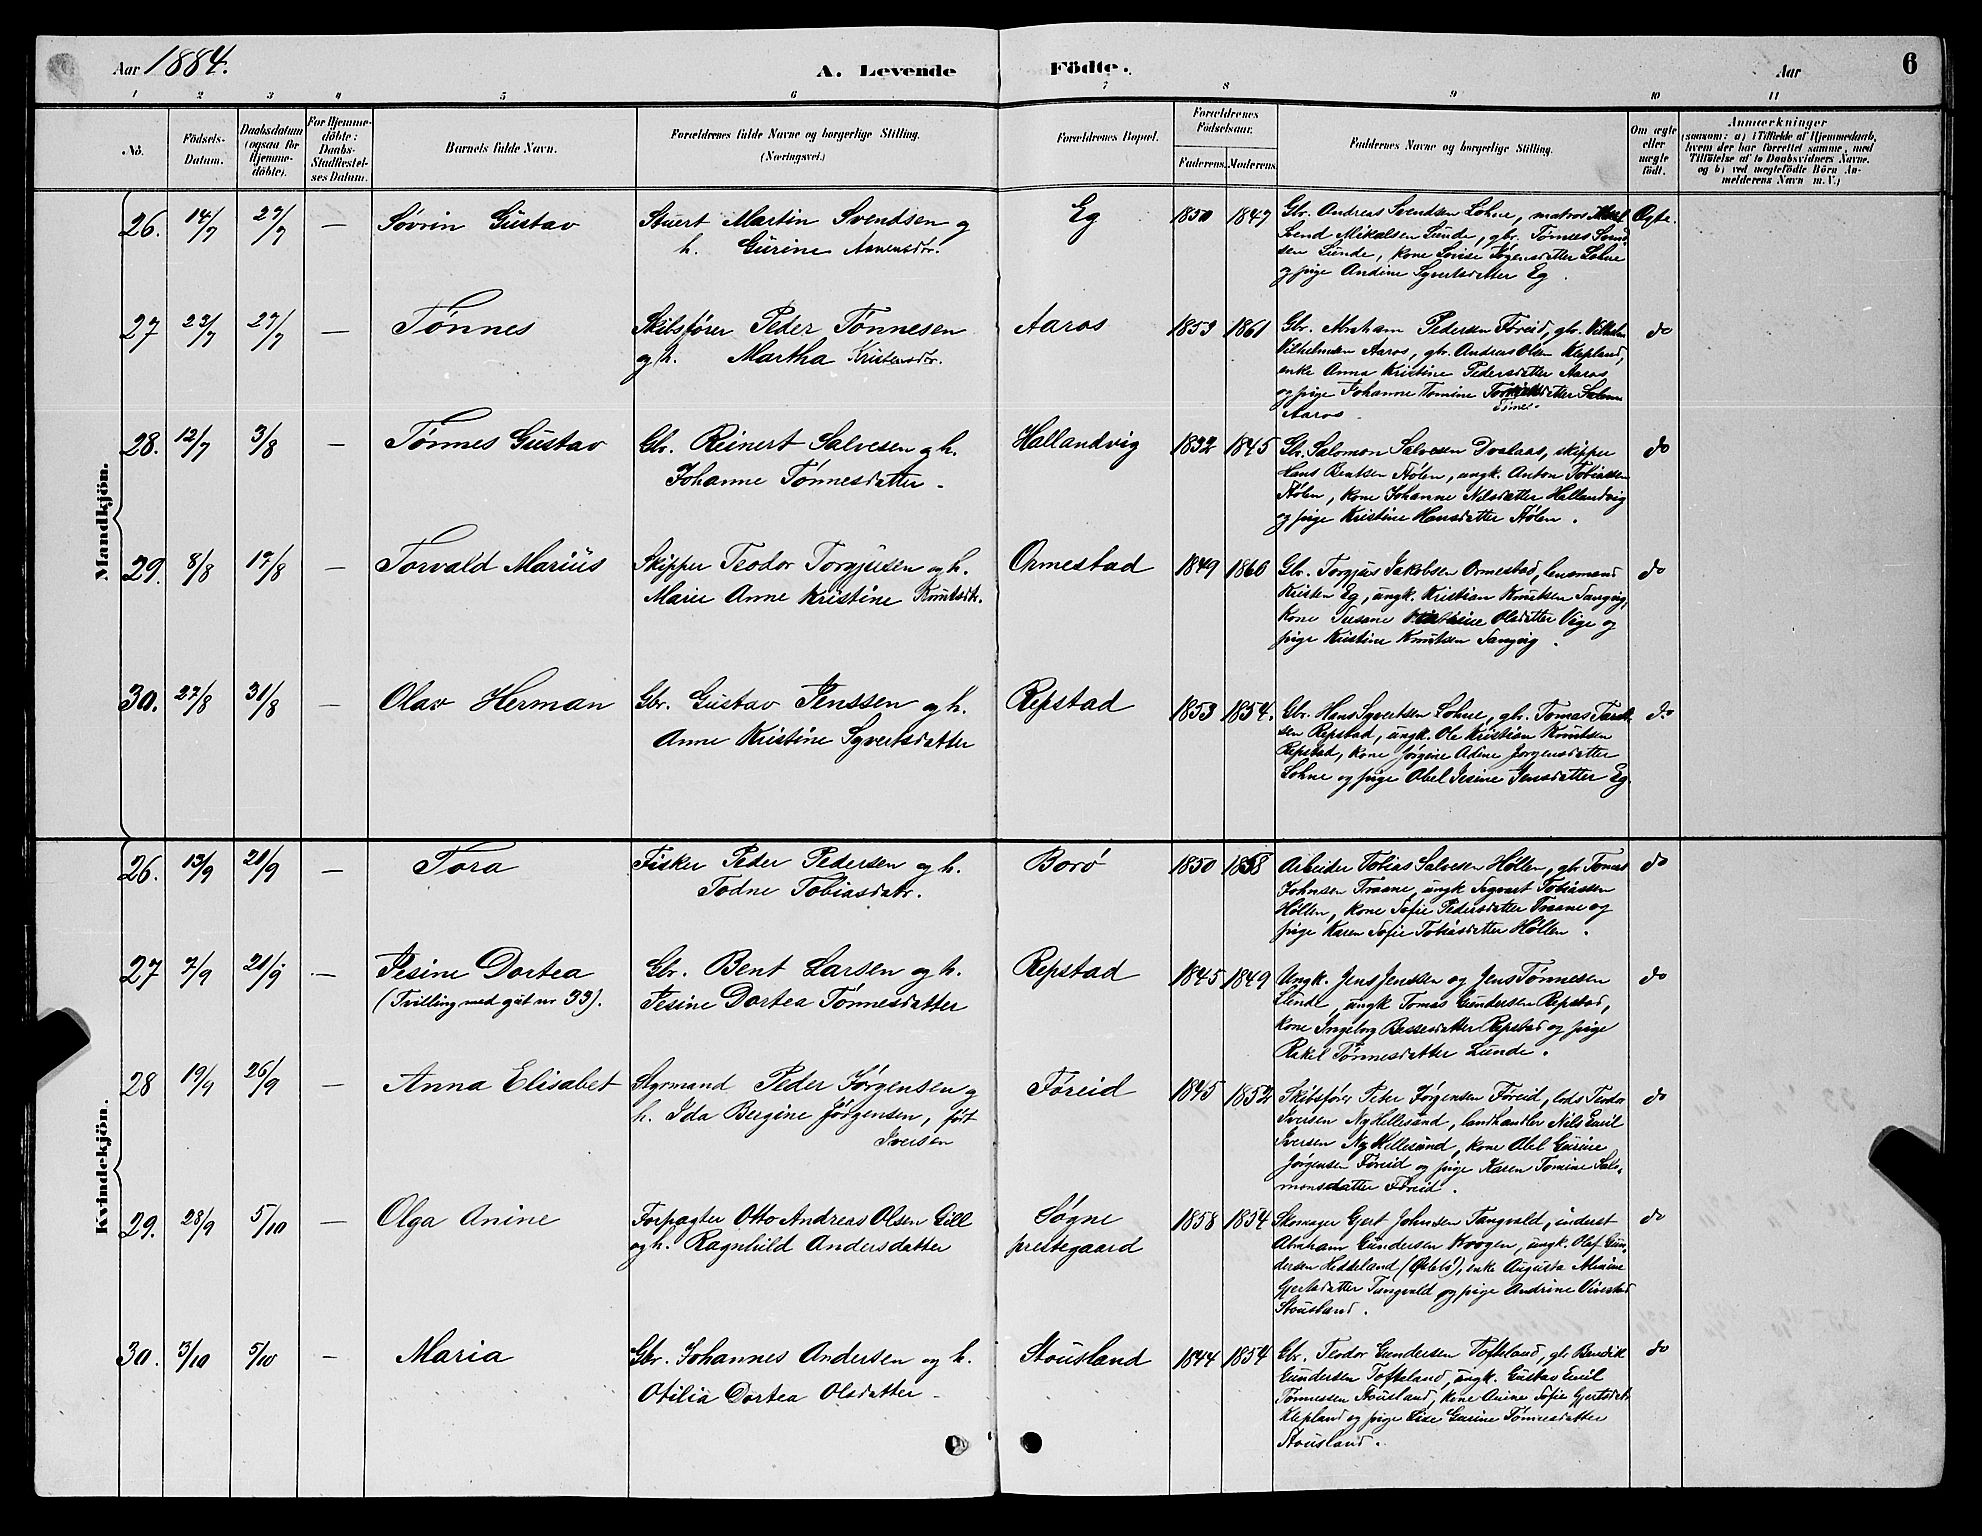 Aar 1884.
A. Levende
Födte.
Aar
6
1 2 3 4 5 6 7 8 9 10 11
No.
Födsels-
Datum.
Daabsdatum
(ogsaa for
Hjemme-
döbte).
For Hjemme-
döbte:
Daabs-
Stadfæstel-
ses Datum.
Barnets fulde Navn.
Forældrenes fulde Navne og borgerlige Stilling.
(Næringsvei.)
Forældrenes Bopæl.
Forældrenes
Födselsaar.
Faderens.
Moderens.
Faddernes Navne og borgerlige Stilling.
Om ægte
eller
uægte
födt.
Anmærkninger
(saasom: a) i Tilfælde af Hjemmedaab,
hvem der har forrettet samme, med
Tilföielse af to Daabsvidners Navne,
og b) ved uægtefödte Börn An-
melderens Navn m. V.)
Mandkjön.
26. 14/7 27/7 — Søvrin Gustav
Stuert Martin Svendsen og
h. Gurine Aanensdtr.
Eg 1850 1847
Gbr. Andreas Svendsen Lohne, matros
Svend Mikalsen Lunde, gbr. Tønnes Svend
sen Lunde, kone Lovise Jørgensdatter Lohne
og pige Andine Syvertsdatter Eg.
Ægte.
27 22/7 27/7 — Tønnes
Skibsfører Peder Tønnesen
og h. Martha Kristensdtr.
Aaros 1853 1861
Gbr. Abraham Pedersen Føreid, gbr. Vilhelm
Vilhelmsen Aaros, gbr. Andreas Olsen Klepland,
enke Anna Kristine Pedersdatter Aaros
og pige Johanne Tomine datter
Aaros.
do
28. 12/7 3/8 — Tønnes Gustav
Gbr. Reinert Salvesen og h.
Johanne Tønnesdatter.
Hallandvig 1832 1845
Gbr. Salomon Salvesen Dvalaas, skipper
Hans Bentsen Stølen, ungk. Anton Tobiassen
Stølen, kone Johanne Nilsdatter Hallandvig
og pige Kristine Hansdatter Stølen.
do
29. 8/8 17/8 — Torvald Marius
Skipper Teodor Torgjusen og h.
Maren Anne Kristine Knutsdtr.
Ormestad 1849 1860
Gbr. Torgjus Jakobsen Ormestad, lensmand
Kristen Eg, ungk. Kristian Knutsen Tangvig,
kone Susane Olsdatter Vige og
pige Kristine Knutsen Tangvig.
do
30. 27/8 31/8 — Olav Herman
Gbr. Gustav Jenssen og h.
Anne Kristine Syvertsdatter
Repstad 1853 1854.
Gbr. Hans Syvertsen Lohne, gbr. Tomas
sen Repstad, ungk. Ole Kristian Knutsen
Repstad, kone Jørgine Adine Jørgensdatter
Lohne og pige Abel Jesine Jensdatter Eg.
do
Kvindekjön.
26. 13/9 21/9 — Tora
Fisker Peder Pedersen og h.
Todne Tobiasdatr.
Borø 1850 1858
Arbeider Tobias Salvesen Høllen, gbr Tomas
Johnsen Traane, ungk Sigvart Tobiassen
Høllen, kone Sofie Pedersdatter Traane og
pige Karen Sofie Tobiasdatter Høllen.
do
27 7/9 21/9 — Jesine Dortea
(Tvilling med gut nr 33).
Gbr. Bent Larsen og h.
Jesine Dortea Tønnesdatter
Repstad 1845 1849
Ungk. Jens Jenssen og Jens Tønnesen
Lunde, ungk Tomas Gundersen Repstad,
kone Ingeborg datter Repstad og pige
Rakel Tønnesdatter Lunde.
do
28 19/9 26/9 — Anna Elisabet
Styrmand Peder Jørgensen og
h. Ida Bergine Jørgensen, født
Iversen
Føreid 1845 1852
Skibsfører Peter Jørgensen Føreid, lods Teodor
Iversen Ny Hellesund, landhandler Nils Emil
Iversen Ny Hellesund, kone Abel Gurine
Jørgensen Føreid og pige Karen Tomine Salo-
monsdatter Føreid.
do
29. 28/9 5/10 — Olga Anine
Forpagter Otto Andreas Olsen Gill
og h. Ragnhild Andersdatter
Søgne
prestegaard
1858 1854
Skomager Gjert Johnsen Tangvald, inderst
Abraham Gundersen Kvogen, ungk. Olaf Gun-
dersen Heddeland (Øslebø), enke Augusta
Gjertsdatter Tangvald og pige Andrine
Stousland.
do
30. 3/10 5/10 — Maria
Gbr. Johannes Andersen og h.
Otilia Dortea Olsdatter.
Stousland 1844 1854
Gbr. Teodor Gundersen Tofteland, gbr Bendik
Gundersen Tofteland, ungk. Gustav Emil
Tønnessen Stousland, kone Anine Sofie Gjertsdatr.
Klepland og pige Lise Gurine Tønnesdatter
Stousland.
do